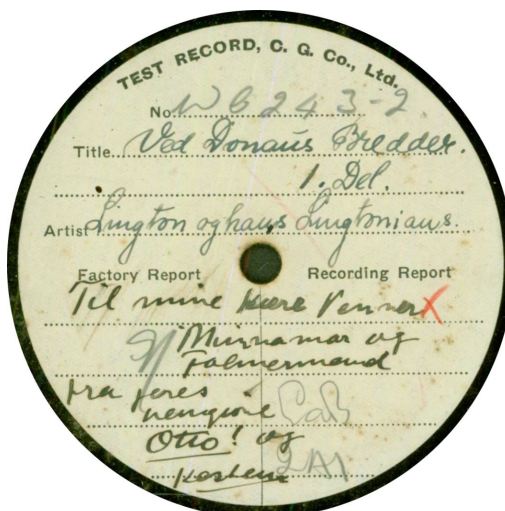 TEST RECORD, C. G. Co., Ltd.
No. WB 243-2
Title Ved Donaus Bredder.
1. Del.
Artist Lington og hans Lingtonians.
Factory Report Recording Report
Til mine kære Venner X
Minnamar og
Falmermand
fra jeres
hengivne
Otto! og
2A1